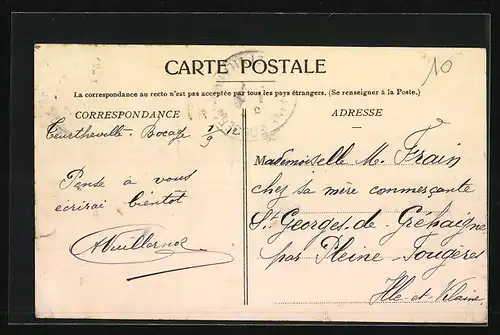 10
CARTE POSTALE
La correspondance au recto n'est pas acceptée par tous les pays étrangers. (Se renseigner à la Poste.)
CORRESPONDANCE
Teurtheville-Bocage 1/9 12
Pense à vous
écrirai bientôt
ADRESSE
Mademoiselle M. Frain
chez sa mère commerçante
St Georges-de-Gréhaigne
par Pleine-Fougères
Ille-et-Vilaine